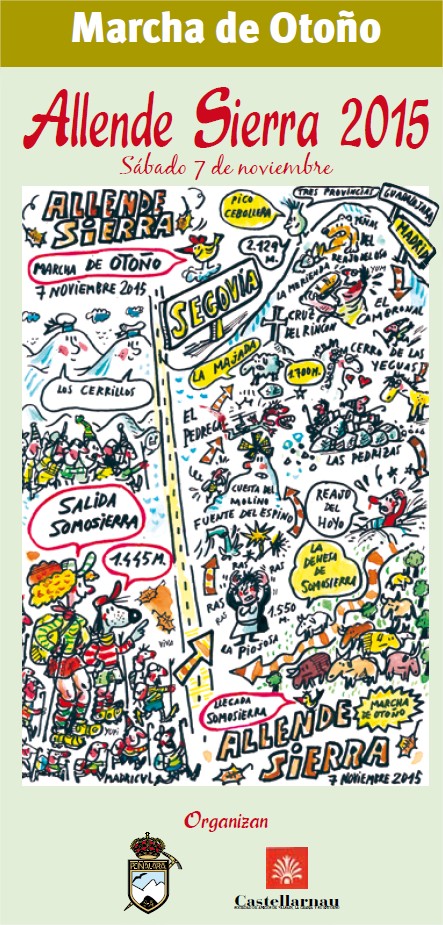 Marcha de Otoño
Allende Sierra 2015
Sábado 7 de noviembre
ALLENDE
SIERRA
MARCHA DE OTOÑO
7 NOVIEMBRE 2015
PICO
CEBOLLERA
2.129 M.
TRES PROVINCIAS
GUADALAJARA
MADRID
SEGOVIA
PEÑAS
DEL
REAJO DEL OSO
LA MERIENDA
YUM
CRUZ
DEL RINCON
EL
CAMBRONAL
LOS CERRILLOS
LA MAJADA
1.700 M.
CERRO DE LAS
YEGUAS
EL
PEDREGAL
LAS PEDRIZAS
CUESTA DEL
MOLINO
FUENTE DEL ESPINO
REAJO
DEL
HOYO
SALIDA
SOMOSIERRA
1.445 M.
LA
DEHESA
DE
SOMOSIERRA
RAS
RAS
RAS
RAS
1.550
M.
LA PIOJOSA
VIVA
YUPI
MADRICULA
LLEGADA
SOMOSIERRA
MARCHA
DE OTOÑO
ALLENDE
SIERRA
7 NOVIEMBRE 2015
Organizan
PEÑALARA
Castellarnau